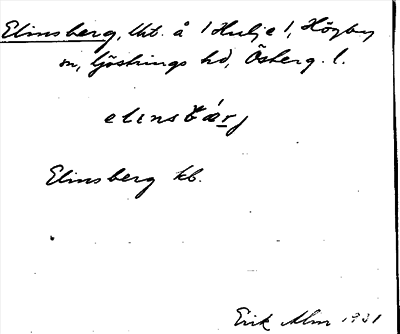 Elinsberg, lht. å /Hulje/, Högby
sn, Göstrings hd, Österg. l.
elinsbærj
Elinsberg kb.
Erik Alm 1931